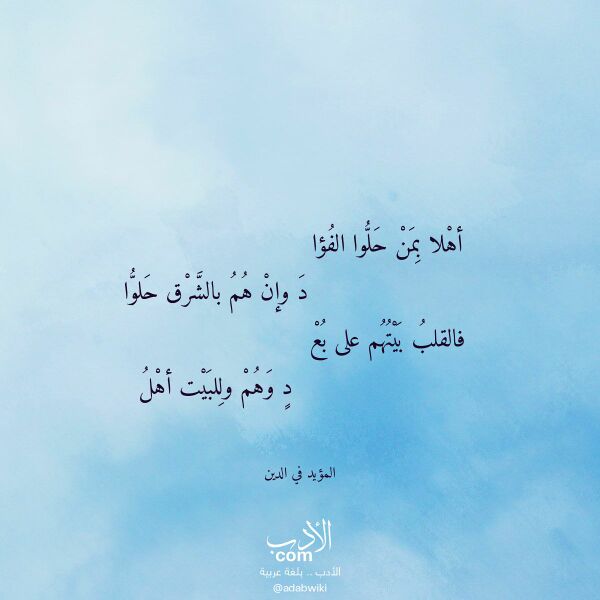 أهْلا بِمَنْ حَلُّوا الفُؤا
دَ وإنْ هُمُ بالشَّرْق حَلوُّا
فالقلبُ بَيْتُهُم على بُعْ
دٍ وَهُمْ ولِلبَيْت أهْلُ
المؤيد في الدين
الأدب
com
الأدب .. بلغة عربية
@adabwiki